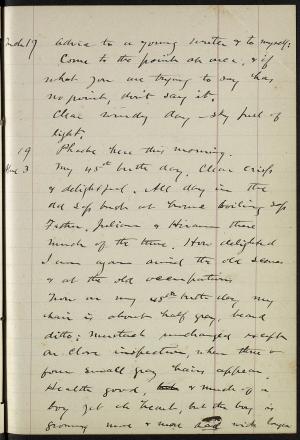 March 17 Advice to a young writer & to myself:
Come to the point at once, & if
what you are trying to say has
no point, don't say it.
Clear windy day – sky full of
light.
19 Phoebe here this morning.
3 My 45th birth day. Clear crisp
& delightful. All day in the
old Sap bush at home boiling sap
Father, Julian & Hiram there
much of the time. How delighted
I am again amid the old scenes
& at the old occupations
Now on my 45th birth day my
hair is about half gray, beard
ditto; mustach unchanged except
on close inspection, when three or
four small gray hairs appear.
Health good, & much of a
boy yet at heart, but the boy is
growing more & more sad with longer